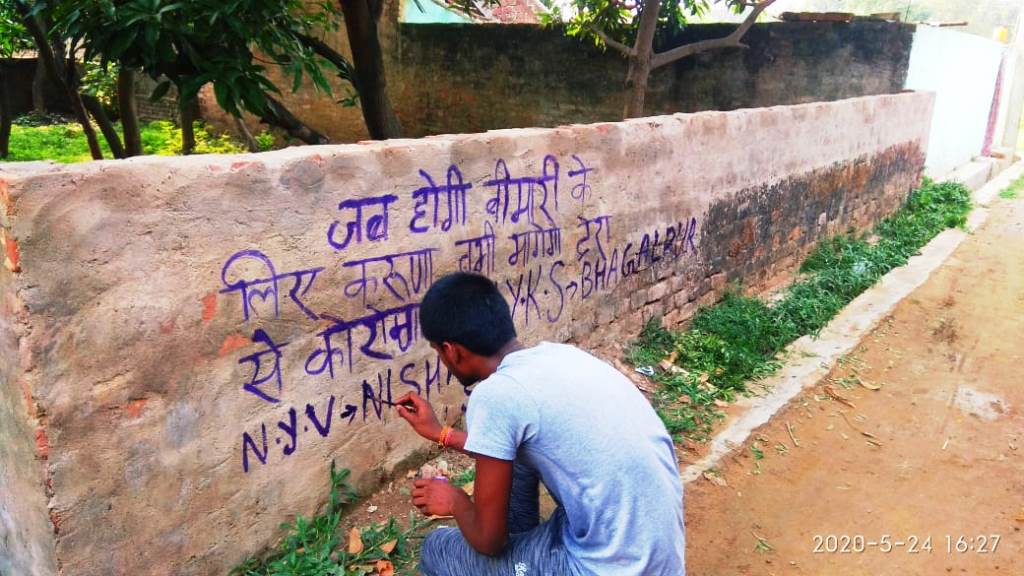 जब होगी बीमारी के
लिए करूणा तभी भागेगा देश
से कोरोना Y.K.S→BHAGALPUR
N.Y.V→NISHA
2020-5-24 16:27